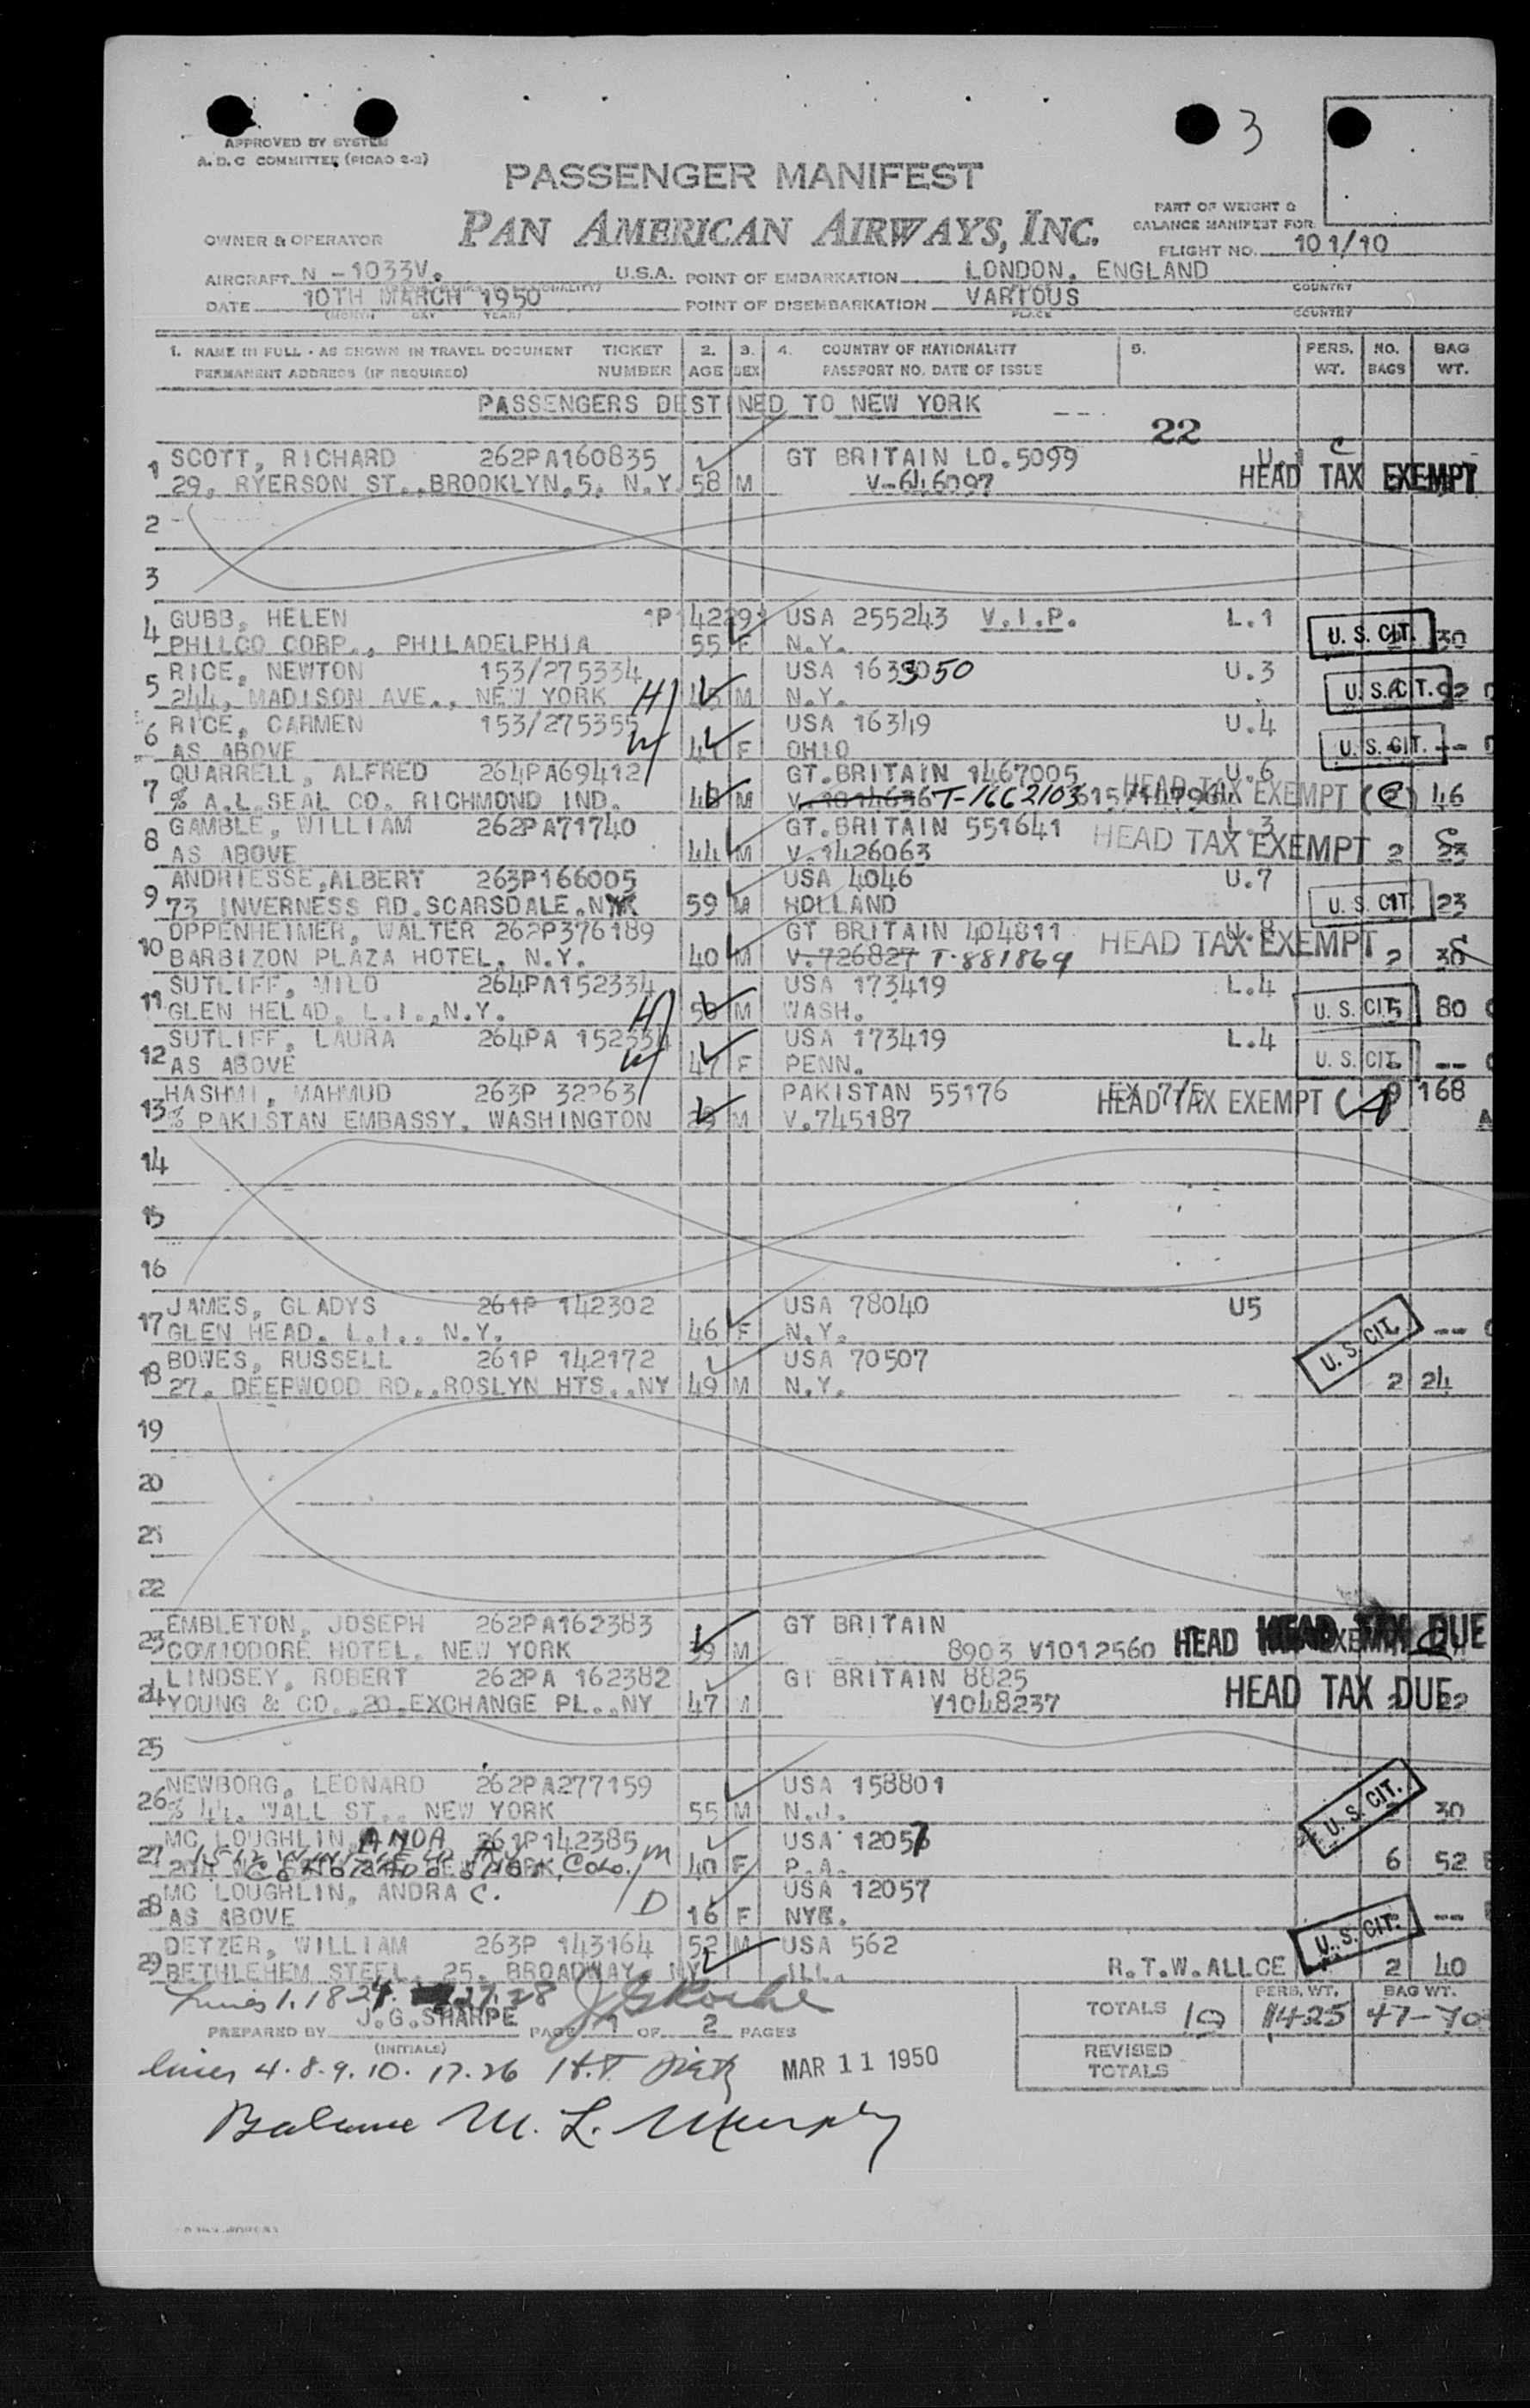 3
APPROVED BY SYSTEM
A. D. C COMMITTEE (PICAO 2-2)
PASSENGER MANIFEST
PAN AMERICAN AIRWAYS, INC.
PART OF WEIGHT &
BALANCE MANIFEST FOR
OWNER & OPERATOR
FLIGHT NO. 101/10
AIRCRAFT N-1033V. U.S.A. POINT OF EMBARKATION LONDON, ENGLAND
COUNTRY
DATE 10TH MARCH 1950 POINT OF DISEMBARKATION VARIOUS
(MONTH DAY YEAR) PLACE COUNTRY
1. NAME IN FULL - AS SHOWN IN TRAVEL DOCUMENT TICKET 2. 3. 4. COUNTRY OF NATIONALITY 5. PERS. NO. BAG
PERMANENT ADDRESS (IF REQUIRED) NUMBER AGE SEX PASSPORT NO. DATE OF ISSUE WT. BAGS WT.
PASSENGERS DESTINED TO NEW YORK
22
1 SCOTT, RICHARD 262PA160835 GT BRITAIN LO.5099 C
29, RYERSON ST.,BROOKLYN,5, N.Y. 58 M V-646097 HEAD TAX EXEMPT
2
3
4 GUBB, HELEN USA 255243 V.I.P. L.1
PHILCO CORP., PHILADELPHIA 55 F N.Y. U. S. CIT. 30
5 RICE, NEWTON 153/275334 USA 1633050 U.3
244, MADISON AVE., NEW YORK H M N.Y. U. S. CIT. 92
6 RICE, CARMEN 153/275355 USA 16349 U.4
AS ABOVE W 41 F OHIO U. S. CIT. --
7 QUARRELL, ALFRED 264PA69412 GT.BRITAIN 1467005 U.6
% A.L.SEAL CO. RICHMOND IND. M T-1662103 HEAD TAX EXEMPT 46
8 GAMBLE, WILLIAM 262PA71740 GT.BRITAIN 551641 L.3
AS ABOVE 44 M V.1426063 HEAD TAX EXEMPT 2
9 ANDRIESSE,ALBERT 263P166005 USA 4046 U.7
73 INVERNESS RD.SCARSDALE.NY 59 M HOLLAND U. S. CIT. 23
10 OPPENHEIMER, WALTER 262P376189 GT BRITAIN 404811 U.8
BARBIZON PLAZA HOTEL, N.Y. 40 M V.726827 T-881869 HEAD TAX EXEMPT 2
11 SUTLIFF, MILO 264PA152334 USA 173419 L.4
GLEN HELAD, L.I.,N.Y. H M WASH. U. S. CIT. 80
12 SUTLIFF, LAURA 264PA 152334 USA 173419 L.4
AS ABOVE W 47 F PENN. U. S. CIT. --
13 HASHMI, MAHMUD 263P 32263 PAKISTAN 55176
% PAKISTAN EMBASSY, WASHINGTON M V.745187 HEAD TAX EXEMPT 168
14
15
16
17 JAMES, GLADYS 261P 142302 USA 78040 U5
GLEN HEAD. L.I., N.Y. 46 F N.Y. U. S. CIT. --
18 BOWES, RUSSELL 261P 142172 USA 70507
27, DEEPWOOD RD.,ROSLYN HTS.,NY 49 M N.Y. 2 24
19
20
21
22
23 EMBLETON, JOSEPH 262PA162383 GT BRITAIN
COMIODORE HOTEL, NEW YORK 39 M 8903 V1012560 HEAD TAX DUE
24 LINDSEY, ROBERT 262PA 162382 GT BRITAIN 8825
YOUNG & CO.,20 EXCHANGE PL.,NY 47 M V1048237 HEAD TAX DUE 22
25
26 NEWBORG, LEONARD 262PA277159 USA 158801
% 44, WALL ST., NEW YORK 55 M N.J. U. S. CIT. 30
27 MC LOUGHLIN, ANDA 261P142385 USA 12057
Colo. M 40 F P.A. 6 52
28 MC LOUGHLIN, ANDRA C. USA 12057
AS ABOVE D 16 F NYC. U. S. CIT. --
29 DETZER, WILLIAM 263P 143164 52 M USA 562
BETHLEHEM STEEL, 25, BROADWAY, NY ILL. R.T.W.ALLCE 2 40
Lines 1.18 24. 27.28
PREPARED BY J.G.SHARPE PAGE 1 OF 2 PAGES
(INITIALS)
TOTALS 19 PERS. WT. 1425 BAG WT. 47-
REVISED
TOTALS
lines 4.8.9.10.17.26 MAR 11 1950
Balance M. L. Murphy